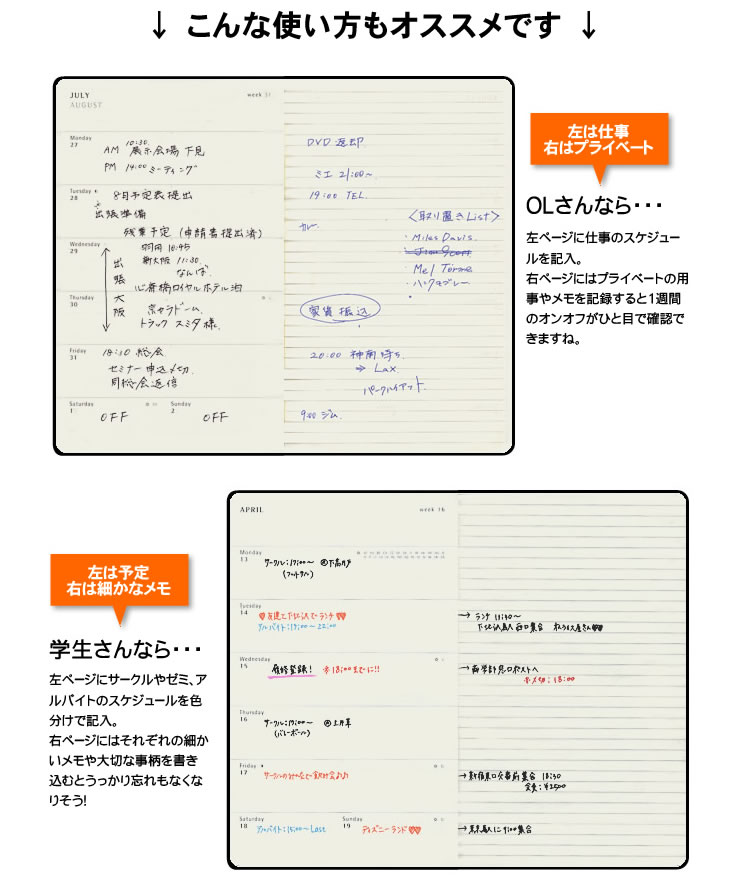 ↓ こんな使い方もオススメです ↓
JULY
AUGUST
week 31
Monday
27
AM 10:30 展示会場 下見
PM 14:00 ミーティング
Tuesday
28
8月予定表提出
出張準備
残業予定 (申請書提出済)
Wednesday
29
羽田 10:45
新大阪 11:30
なんば
心斎橋ロイヤルホテル泊
出張 大阪
Thursday
30
京セラドーム
トラック スミタ様
Friday
31
18:30 総会
セミナー申込〆切
同総会返信
Saturday
1
OFF
Sunday
2
OFF
DVD 返却
ミエ 21:00~
19:00 TEL
カレー
〈取り置きList〉
・Miles Davis
・Mel Torme
・ハンクモブレー
家賃振込
20:00 神南待ち
⇒ Lax
パークハイアット
9:00 ジム
左は仕事
右はプライベート
OLさんなら・・・
左ページに仕事のスケジュー
ルを記入。
右ページにはプライベートの用
事やメモを記録すると1週間
のオンオフがひと目で確認で
きますね。
左は予定
右は細かなメモ
学生さんなら・・・
左ページにサークルやゼミ、ア
ルバイトのスケジュールを色
分けで記入。
右ページにはそれぞれの細か
いメモや大切な事柄を書き
込むとうっかり忘れもなくな
りそう!
APRIL
week 16
Monday
13
サークル:17:00~ @下高井戸
(フットサル)
Tuesday
14
友達と下北沢でランチ
アルバイト:17:00~22:00
→ ランチ 11:30~
下北沢駅西口集合
Wednesday
15
履修登録! ※18:00までに!!
→ 商学部窓口ポストへ
※〆切:18:00
Thursday
16
サークル:17:00~
(バレーボール)
Friday
17
サークルの仲間で飲み会♪♪
→ 新宿東口交番前集合 18:30
会費:¥2500
Saturday
18
アルバイト:15:00~Last
Sunday
19
ディズニーランド
→ 東京駅に9:00集合